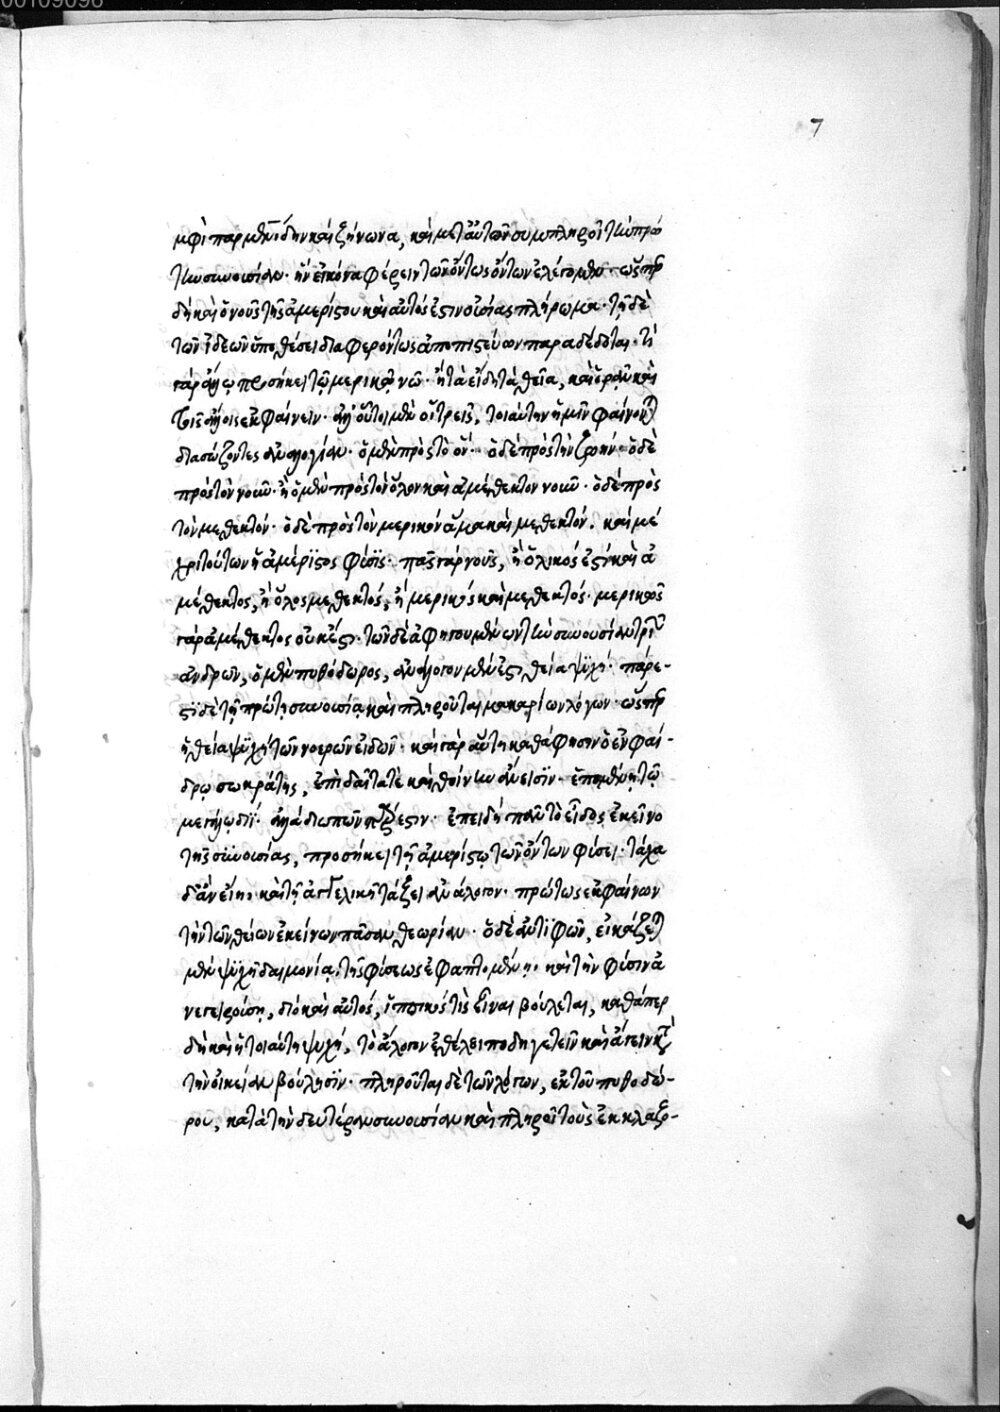 7
μφὶ παρμενίδην καὶ ζήνωνα, καὶ μετ' αὐτῶν συμπληροῖ τὴν πρώ
την συνουσίαν· ἣν εἰκόνα φέρειν τῶν ὄντως ὄντων ἐλέγομεν· ὥσπερ
δὴ καὶ ὁ νοῦς τῆς ἀμερίστου καὶ αὐτός ἐστιν οὐσίας πλήρωμα· τῇ δὲ
τῶν ἰδεῶν ὑποθέσει διαφερόντως ἀποπιστεύων παραδέδοται· τί
γὰρ ἄλλῳ προσήκει τῷ μερικῷ νῷ· ἢ τὰ εἴδη τὰ θεῖα, καὶ ὁρᾶν καὶ
τοῖς ἄλλοις ἐκφαίνειν· ἀλλ' οὗτοι μὲν οἱ τρεῖς, τοιαύτην ἡμῖν φαίνονται
διασώζοντες ἀναλογίαν· ὁ μὲν πρὸς τὸ ὄν· ὁ δὲ πρὸς τὴν ζωήν· ὁ δὲ
πρὸς τὸν νοῦν· ἢ ὁ μὲν πρὸς τὸν ὅλον καὶ ἀμέθεκτον νοῦν· ὁ δὲ πρὸς
τὸν μεθεκτόν· ὁ δὲ πρὸς τὸν μερικὸν ἅμα καὶ μεθεκτόν. καὶ μέ
χρι τούτων ἡ ἀμέριστος φύσις· πᾶς γὰρ νοῦς, ἢ ὁλικός ἐστι καὶ ἀ
μέθεκτος, ἢ ὅλος μεθεκτός, ἢ μερικὸς καὶ μεθεκτός· μερικὸς
γὰρ ἀμέθεκτος οὐκ ἔστι· τῶν δὲ ἀφηγουμένων τὴν συνουσίαν τριῶν
ἀνδρῶν, ὁ μὲν πυθόδωρος, ἀνάλογον μέν ἐστι θείᾳ ψυχῇ· πάρε-
στι δὲ τῇ πρώτῃ συνουσίᾳ καὶ πληροῦται μακαρίων λόγων· ὥσπερ
ἡ θεία ψυχὴ τῶν νοερῶν εἰδῶν· καὶ γὰρ αὕτη καθά φησιν ὁ ἐν φαί-
δρῳ σωκράτης, ἐπὶ δαῖτά τε καὶ θοίνην ἄνεισιν· ἑπομένη τῷ
μεγάλῳ διί· ἀλλὰ σιωπῶν πάρεστιν· ἐπειδὴ πᾶν τὸ εἶδος ἐκεῖνο
τῆς συνουσίας, προσήκει τῇ ἀμερίστῳ τῶν ὄντων φύσει· τάχα
δ' ἂν εἴη, καὶ τῇ ἀγγελικῇ τάξει ἀνάλογον· πρώτως ἐκφαίνων
τὴν τῶν θείων ἐκείνων πᾶσαν θεωρίαν· ὁ δὲ ἀντιφῶν, εἰκάζεται
μὲν ψυχῇ δαιμονίᾳ, τῆς φύσεως ἐφαπτομένῃ, καὶ τὴν φύσιν ἀ
νεγειρούσῃ, διὸ καὶ αὐτός, ἱππικός τις εἶναι βούλεται, καθάπερ
δὴ καὶ ἡ τοιαύτη ψυχή, τὸ ἄλογον ἐθέλει ποδηγετεῖν καὶ ἄγειν κατὰ
τὴν οἰκείαν βούλησιν· πληροῦται δὲ τῶν λόγων, ἐκ τοῦ πυθοδώ-
ρου, κατὰ τὴν δευτέραν συνουσίαν καὶ πληροῖ τοὺς ἐκ κλαζο-